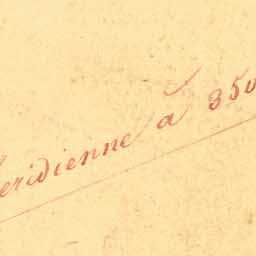 eridienne à 350